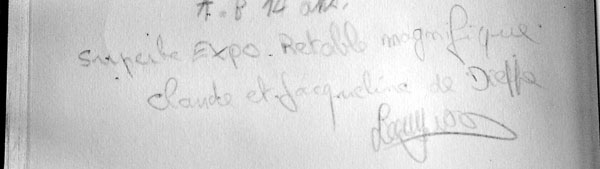 A.B 14 ans.
Superbe EXPO. Retable magnifique.
Claude et Jacqueline de Dieppe